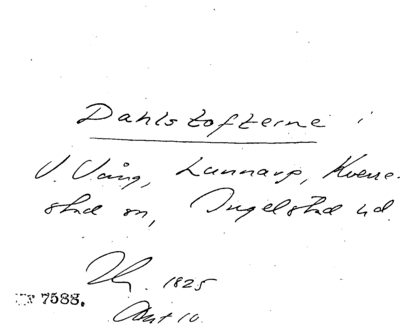 Dahlstofterne i
V. Vång, Lunnarp, Kverre-
stad sn, Ingelstad hd.
1825
7588.
Akt 10.